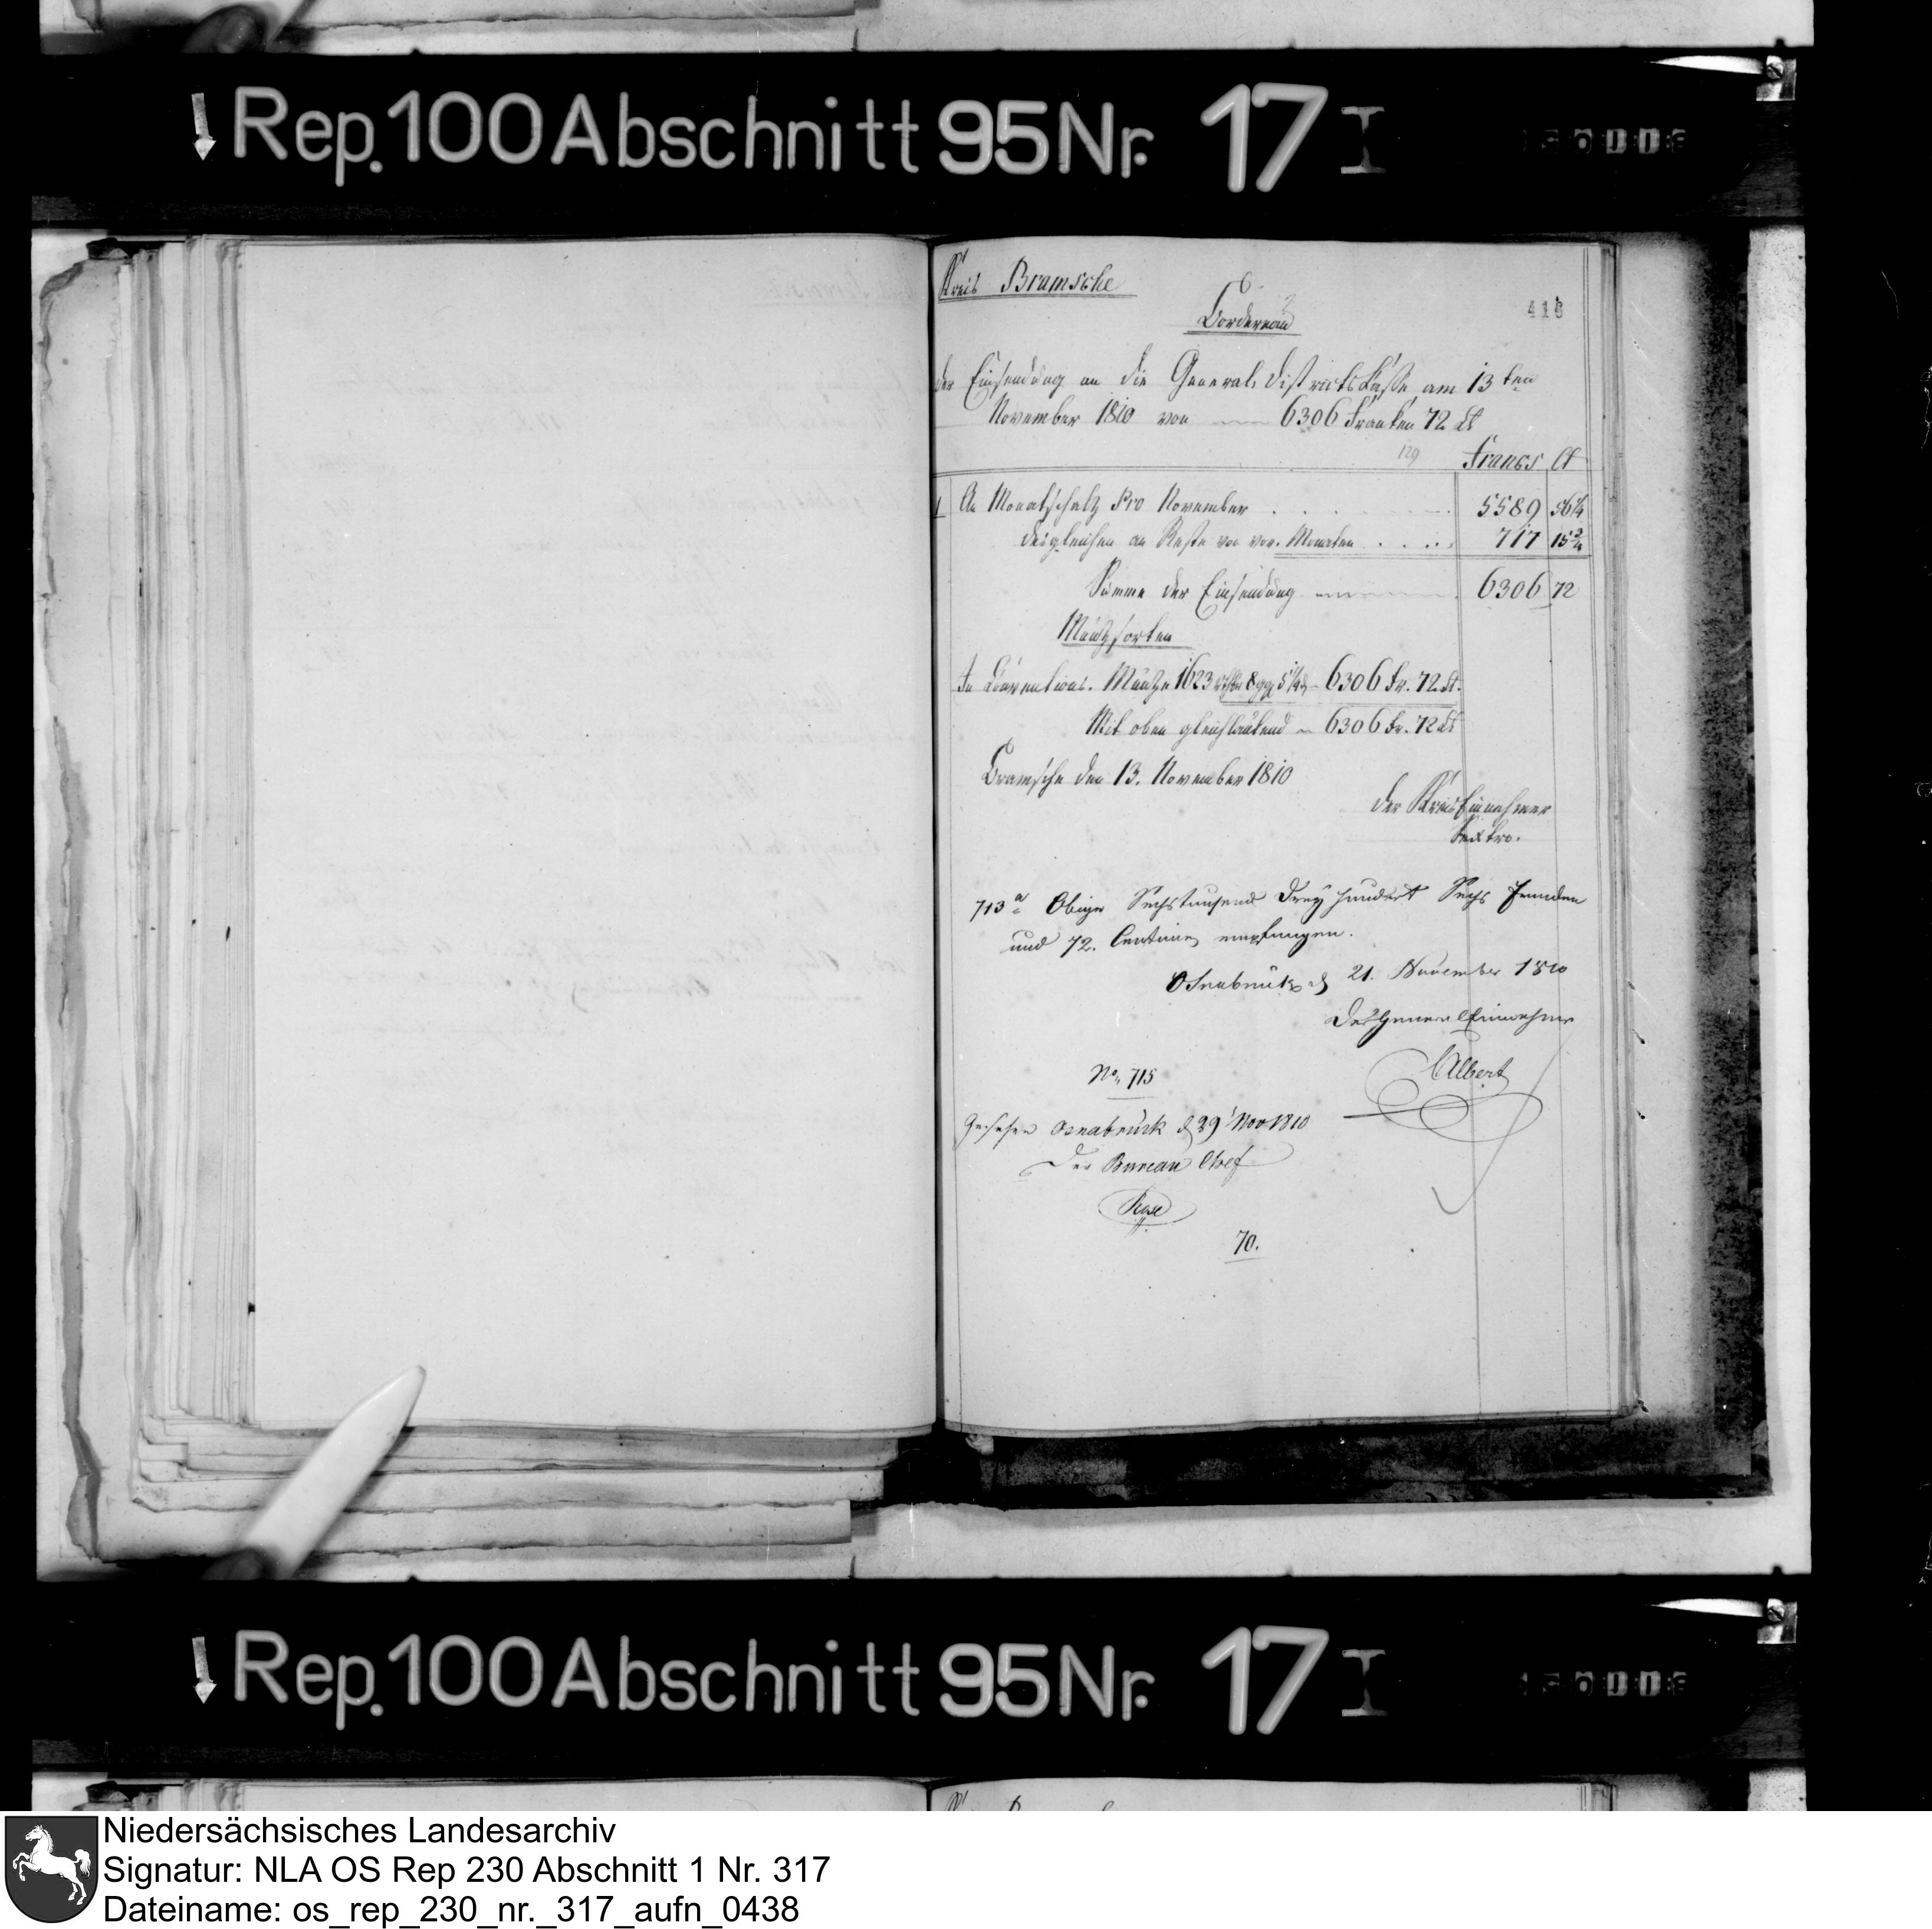 Rep. 100 Abschnitt 95 Nr. 17 I
Kreis Bramsche
Bordereau
der Einsendung an die General Districts Casse am 13ten
November 1810 von 6306 Franken 72 Ct
129
Francs Ct
1 An Monatschatz Pro November . . . . 5589 56 1/4
desgleichen an Reste von vor. Monaten . . . . 717 15 3/4
Summe der Einsendung 6306 72
Müntzsorten
In Conventions. Müntze 1623 rthlr 8 ggr 5 1/4 d - 6306 Fr. 72 Ct.
Mit oben gleichlautend - 6306 Fr. 72 Ct
Bramsche den 13. November 1810
der KreisEinnehmer
Sextro.
713 a Obige Sechstausend Dreyhundert Sechs Franken
und 72. Centimes empfangen.
Osnabrück d 21. November 1810
Der General Einnehmer
Albert
No. 715
Gesehen Osnabrück d 29 Nov 1810
Der Bureau Chef
Rose
70.
Rep. 100 Abschnitt 95 Nr. 17 I
Niedersächsisches Landesarchiv
Signatur: NLA OS Rep 230 Abschnitt 1 Nr. 317
Dateiname: os_rep_230_nr._317_aufn_0438